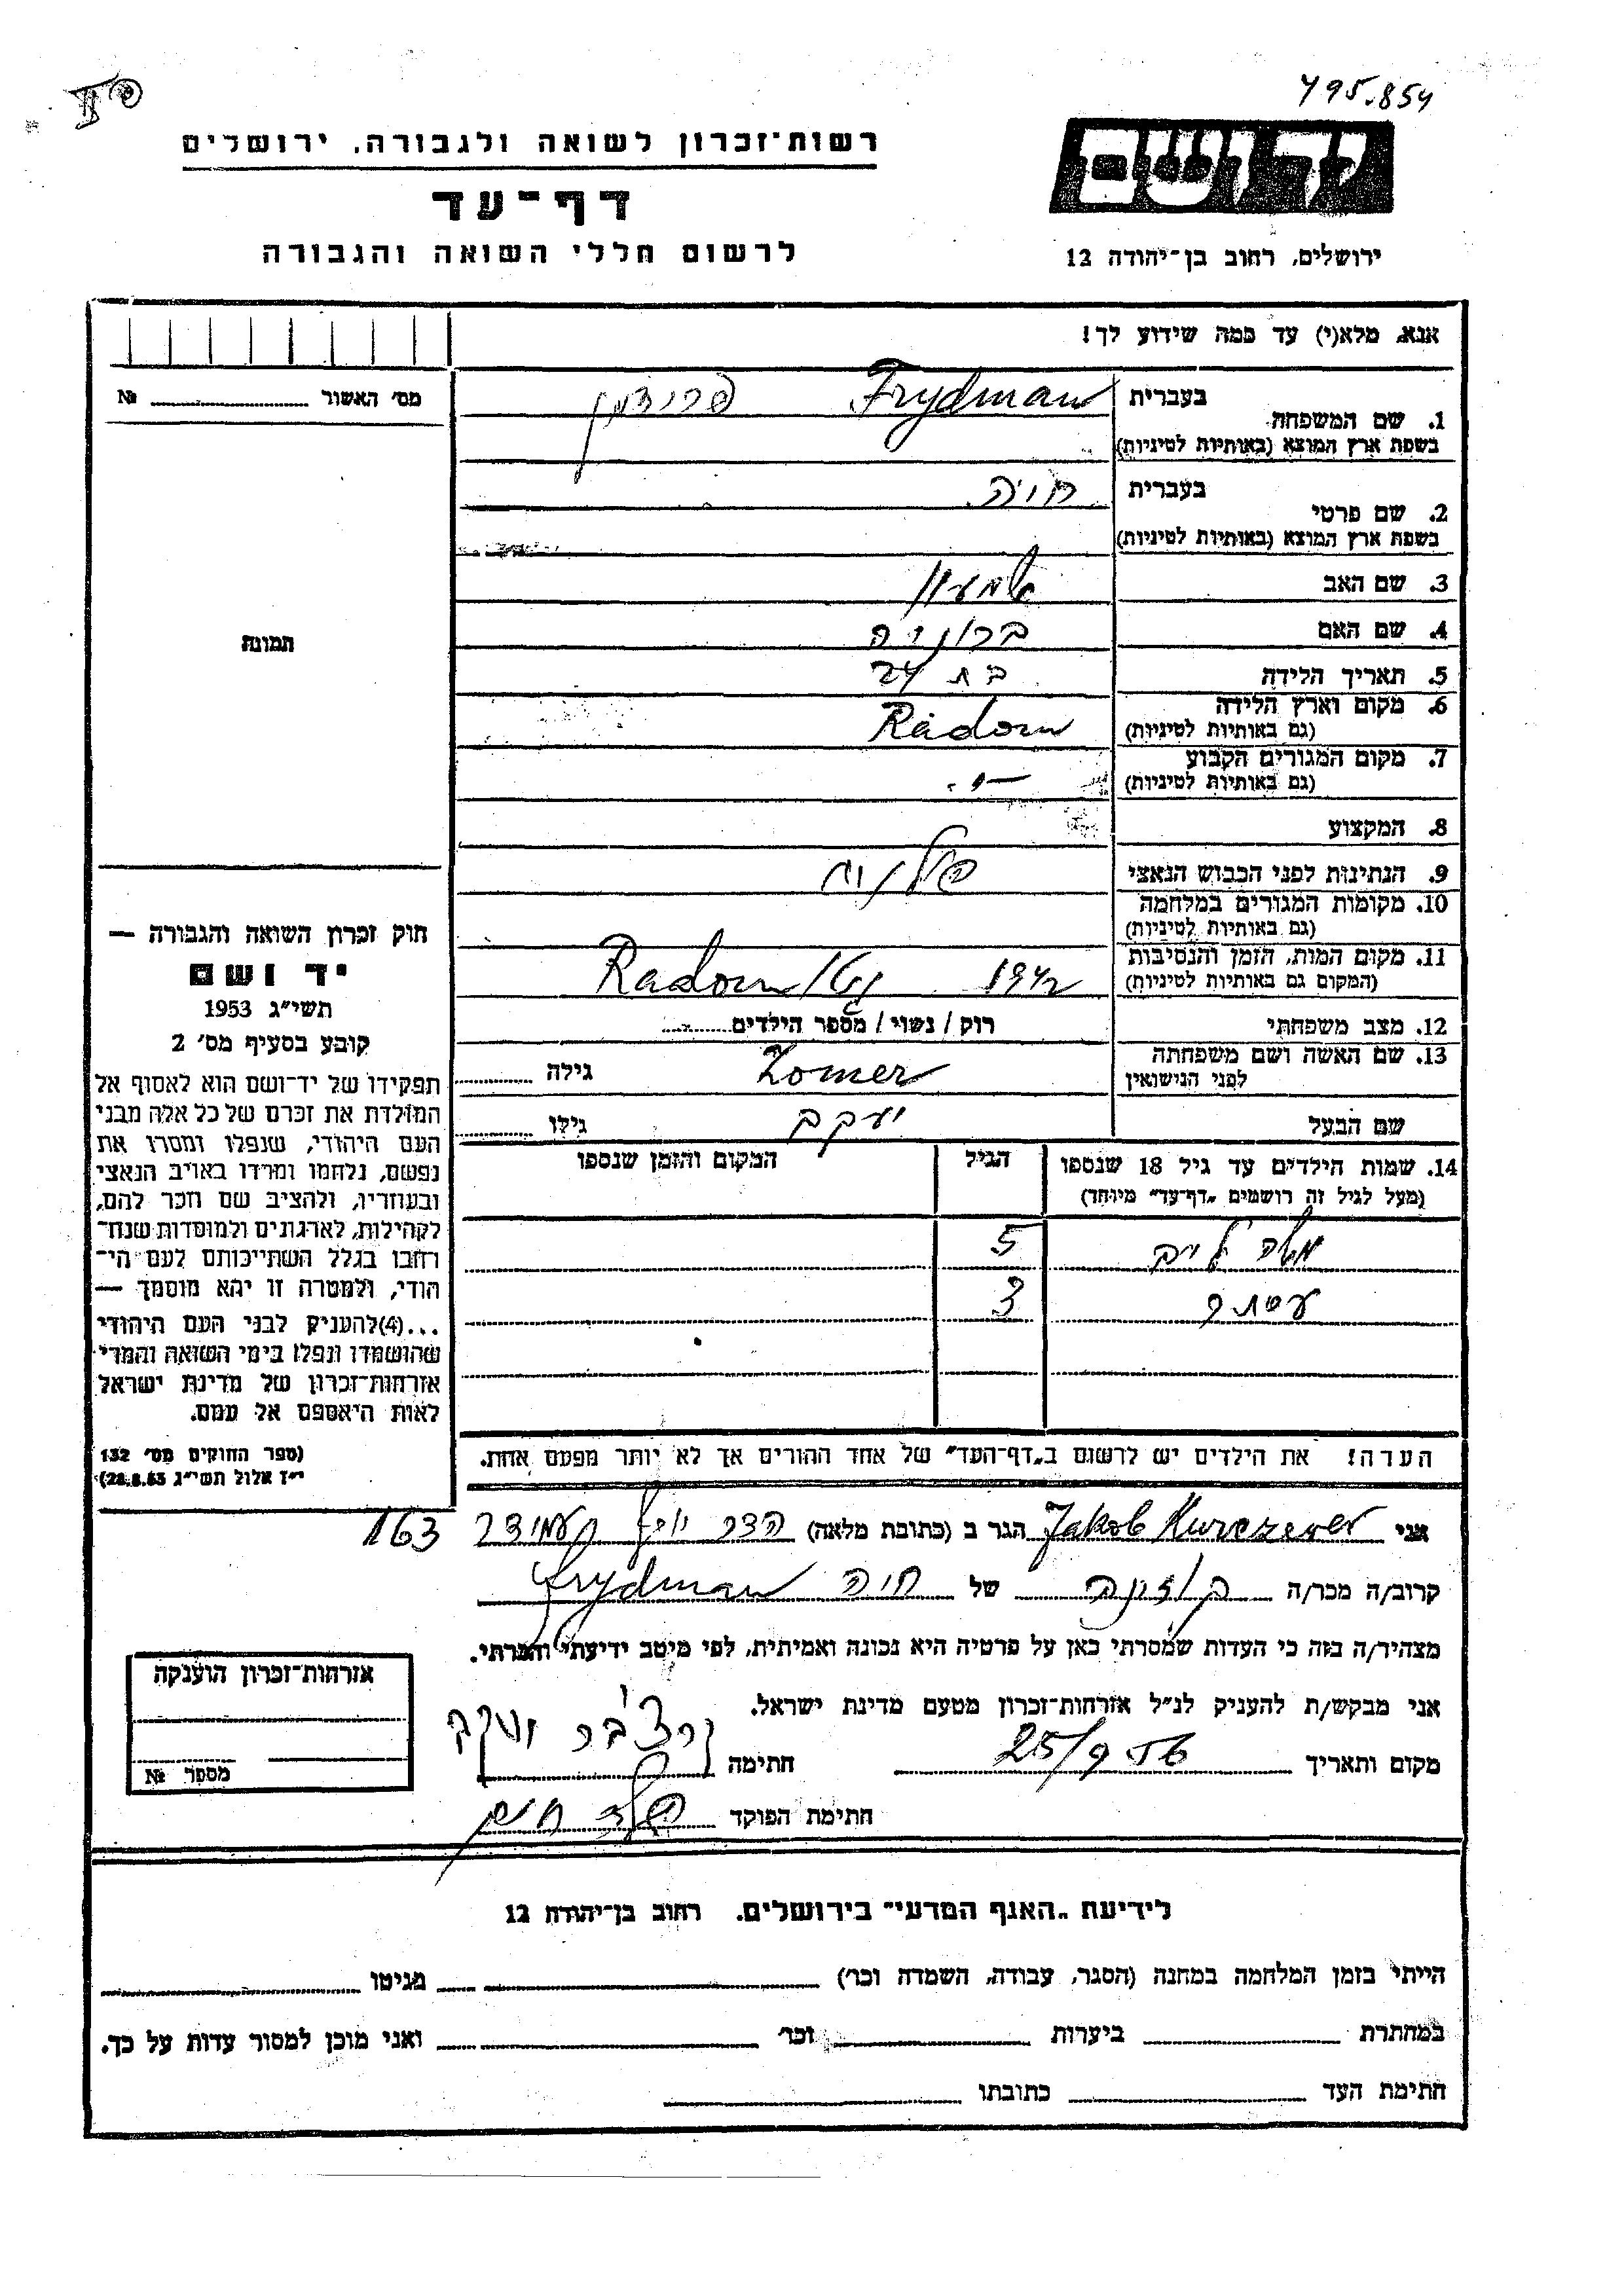 495.854
רשות־זכרון לשואה ולגבורה, ירושלים
יד ושם
דף־עד
לרשום חללי השואה והגבורה
ירושלים, רחוב בן־יהודה 12
אנא, מלא(י) עד כמה שידוע לך!
מס׳ האשור № 
1. שם המשפחה
בעברית Frydman פרידמן
בשפת ארץ המוצא (באותיות לטיניות)
2. שם פרטי
בעברית חיה
בשפת ארץ המוצא (באותיות לטיניות)
3. שם האב שמעון
4. שם האם ברוניה
5. תאריך הלידה בת 24
6. מקום וארץ הלידה
(גם באותיות לטיניות) Radom
7. מקום המגורים הקבוע
(גם באותיות לטיניות) —״—
8. המקצוע
9. הנתינות לפני הכבוש הנאצי פולנית
10. מקומות המגורים במלחמה
(גם באותיות לטיניות)
11. מקום המות, הזמן והנסיבות
(המקום גם באותיות לטיניות) 1942 Radom
12. מצב משפחתי רוק / נשוי / מספר הילדים
13. שם האשה ושם משפחתה
לפני הנישואין Zomer גילה
שם הבעל יעקב גילו
14. שמות הילדים עד גיל 18 שנספו הגיל המקום והזמן שנספו
(מעל לגיל זה רושמים „דף־עד״ מיוחד)
משה לייב 5
3
הערה! את הילדים יש לרשום ב„דף־העד״ של אחד ההורים אך לא יותר מפעם אחת.
תמונה
חוק זכרון השואה והגבורה —
יד ושם
תשי״ג 1953
קובע בסעיף מס׳ 2
תפקידו של יד־ושם הוא לאסוף אל
המולדת את זכרם של כל אלה מבני
העם היהודי, שנפלו ומסרו את
נפשם, נלחמו ומרדו באויב הנאצי
ובעוזריו, ולהציב שם וזכר להם,
לקהילות, לארגונים ולמוסדות שנח־
רחבו בגלל השתייכותם לעם הי־
הודי, ולמטרה זו יהא מוסמך —
...(4) להעניק לבני העם היהודי
שהושמדו ונפלו בימי השואה והמרי
אזרחות־זכרון של מדינת ישראל
לאות היאספם אל עמם.
(ספר החוקים מס׳ 132
י״ז אלול תשי״ג 28.8.53)
אני Jakob Kurczewer הגר ב (כתובת מלאה) הדר יוסף 163
קרוב/ה מכר/ה של חיה Frydman
מצהיר/ה בזה כי העדות שמסרתי כאן על פרטיה היא נכונה ואמיתית, לפי מיטב ידיעתי והכרתי.
אני מבקש/ת להעניק לנ״ל אזרחות־זכרון מטעם מדינת ישראל.
מקום ותאריך 25/9 56 חתימה
חתימת הפוקד
אזרחות־זכרון הוענקה
מספר №
לידיעת „האגף המדעי״ בירושלים, רחוב בן־יהודה 12
הייתי בזמן המלחמה במחנה (הסגר, עבודה, השמדה וכו׳) מגיטו
במחתרת ביערות וכו׳ ואני מוכן למסור עדות על כך.
חתימת העד כתובתו